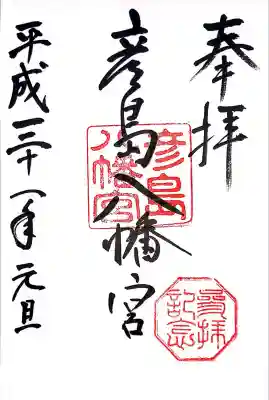 奉拝
彦島八幡宮
彦島八幡宮
参拝記念
平成三十一年元旦